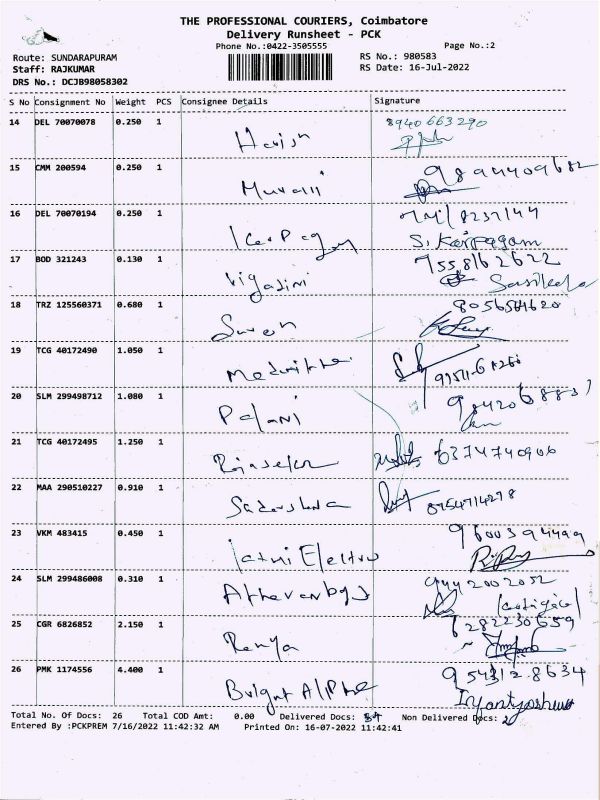 THE PROFESSIONAL COURIERS, Coimbatore
Delivery Runsheet - PCK
Phone No.:0422-3505555 Page No.:2
Route: SUNDARAPURAM RS No.: 980583
Staff: RAJKUMAR RS Date: 16-Jul-2022
DRS No.: DCJB98058302
S No Consignment No Weight PCS Consignee Details Signature
14 DEL 70070078 0.250 1 Harish 8940663290
15 CMM 200594 0.250 1 Murali 9894409682
16 DEL 70070194 0.250 1
S. Karpagam
17 BOD 321243 0.130 1 7558162622
Sasikala
18 TRZ 125560371 0.680 1 Suren
19 TCG 40172490 1.050 1
20 SLM 299498712 1.080 1 Palani
21 TCG 40172495 1.250 1 Rajasekar 6374740906
22 MAA 290510227 0.910 1 8754714278
23 VKM 483415 0.450 1 9600394499
24 SLM 299486008 0.310 1 9442002052
25 CGR 6826852 2.150 1 Renya 6282230659
26 PMK 1174556 4.400 1 9543128634
Total No. Of Docs: 26 Total COD Amt: 0.00 Delivered Docs: Non Delivered Docs: 2
Entered By :PCKPREM 7/16/2022 11:42:32 AM Printed On: 16-07-2022 11:42:41